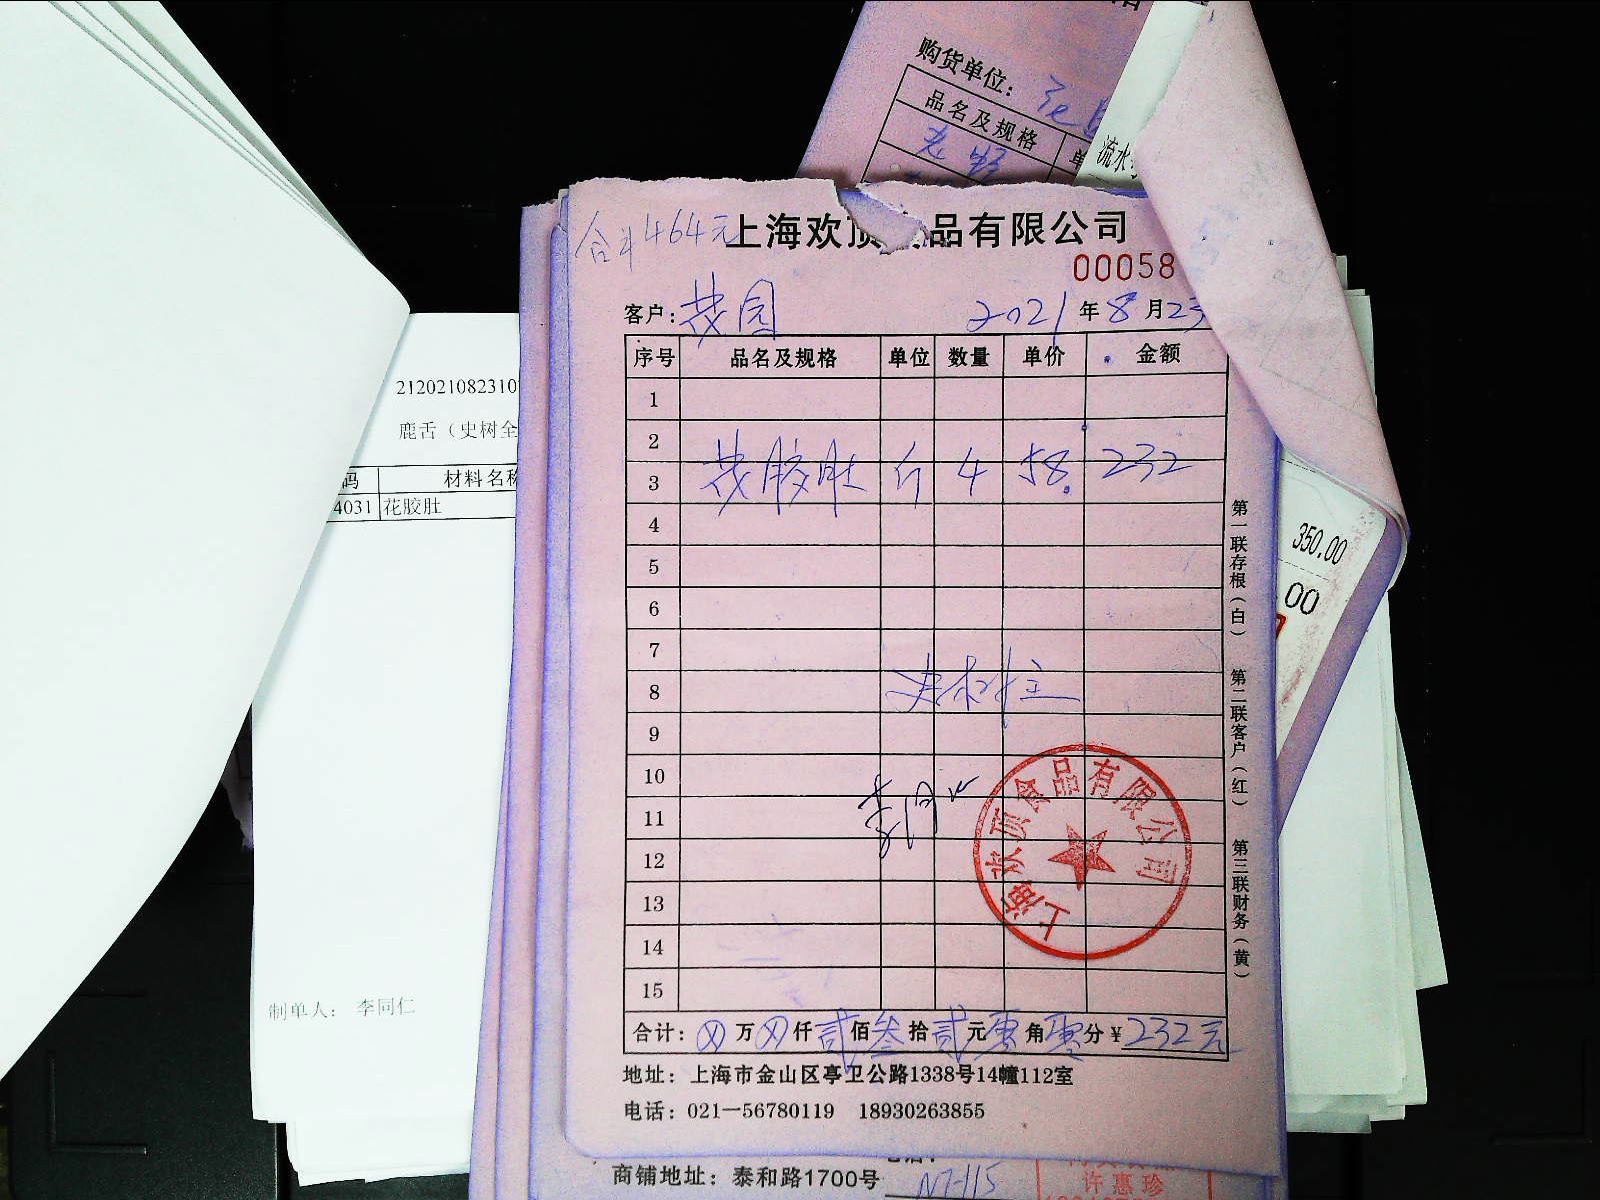 购货单位：
品名及规格 单
流水
合计464元
上海欢顶食品有限公司
00058
客户：花园 2021年8月23
序号 品名及规格 单位 数量 单价 金额
1
2
3 花胶肚 斤 4 58. 232
4
5
6
7
8
9
10
11
12
13
14
15
合计： 万 仟 贰佰叁拾贰元零角零分¥232元
地址：上海市金山区亭卫公路1338号14幢112室
电话：021—56780119 18930263855
第一联存根（白） 第二联客户（红） 第三联财务（黄）
上海欢顶食品有限公司
212021082310
鹿舌（史树全
码 材料名称
4031 花胶肚
制单人： 李同仁
350.00
.00
商铺地址：泰和路1700号
许惠珍